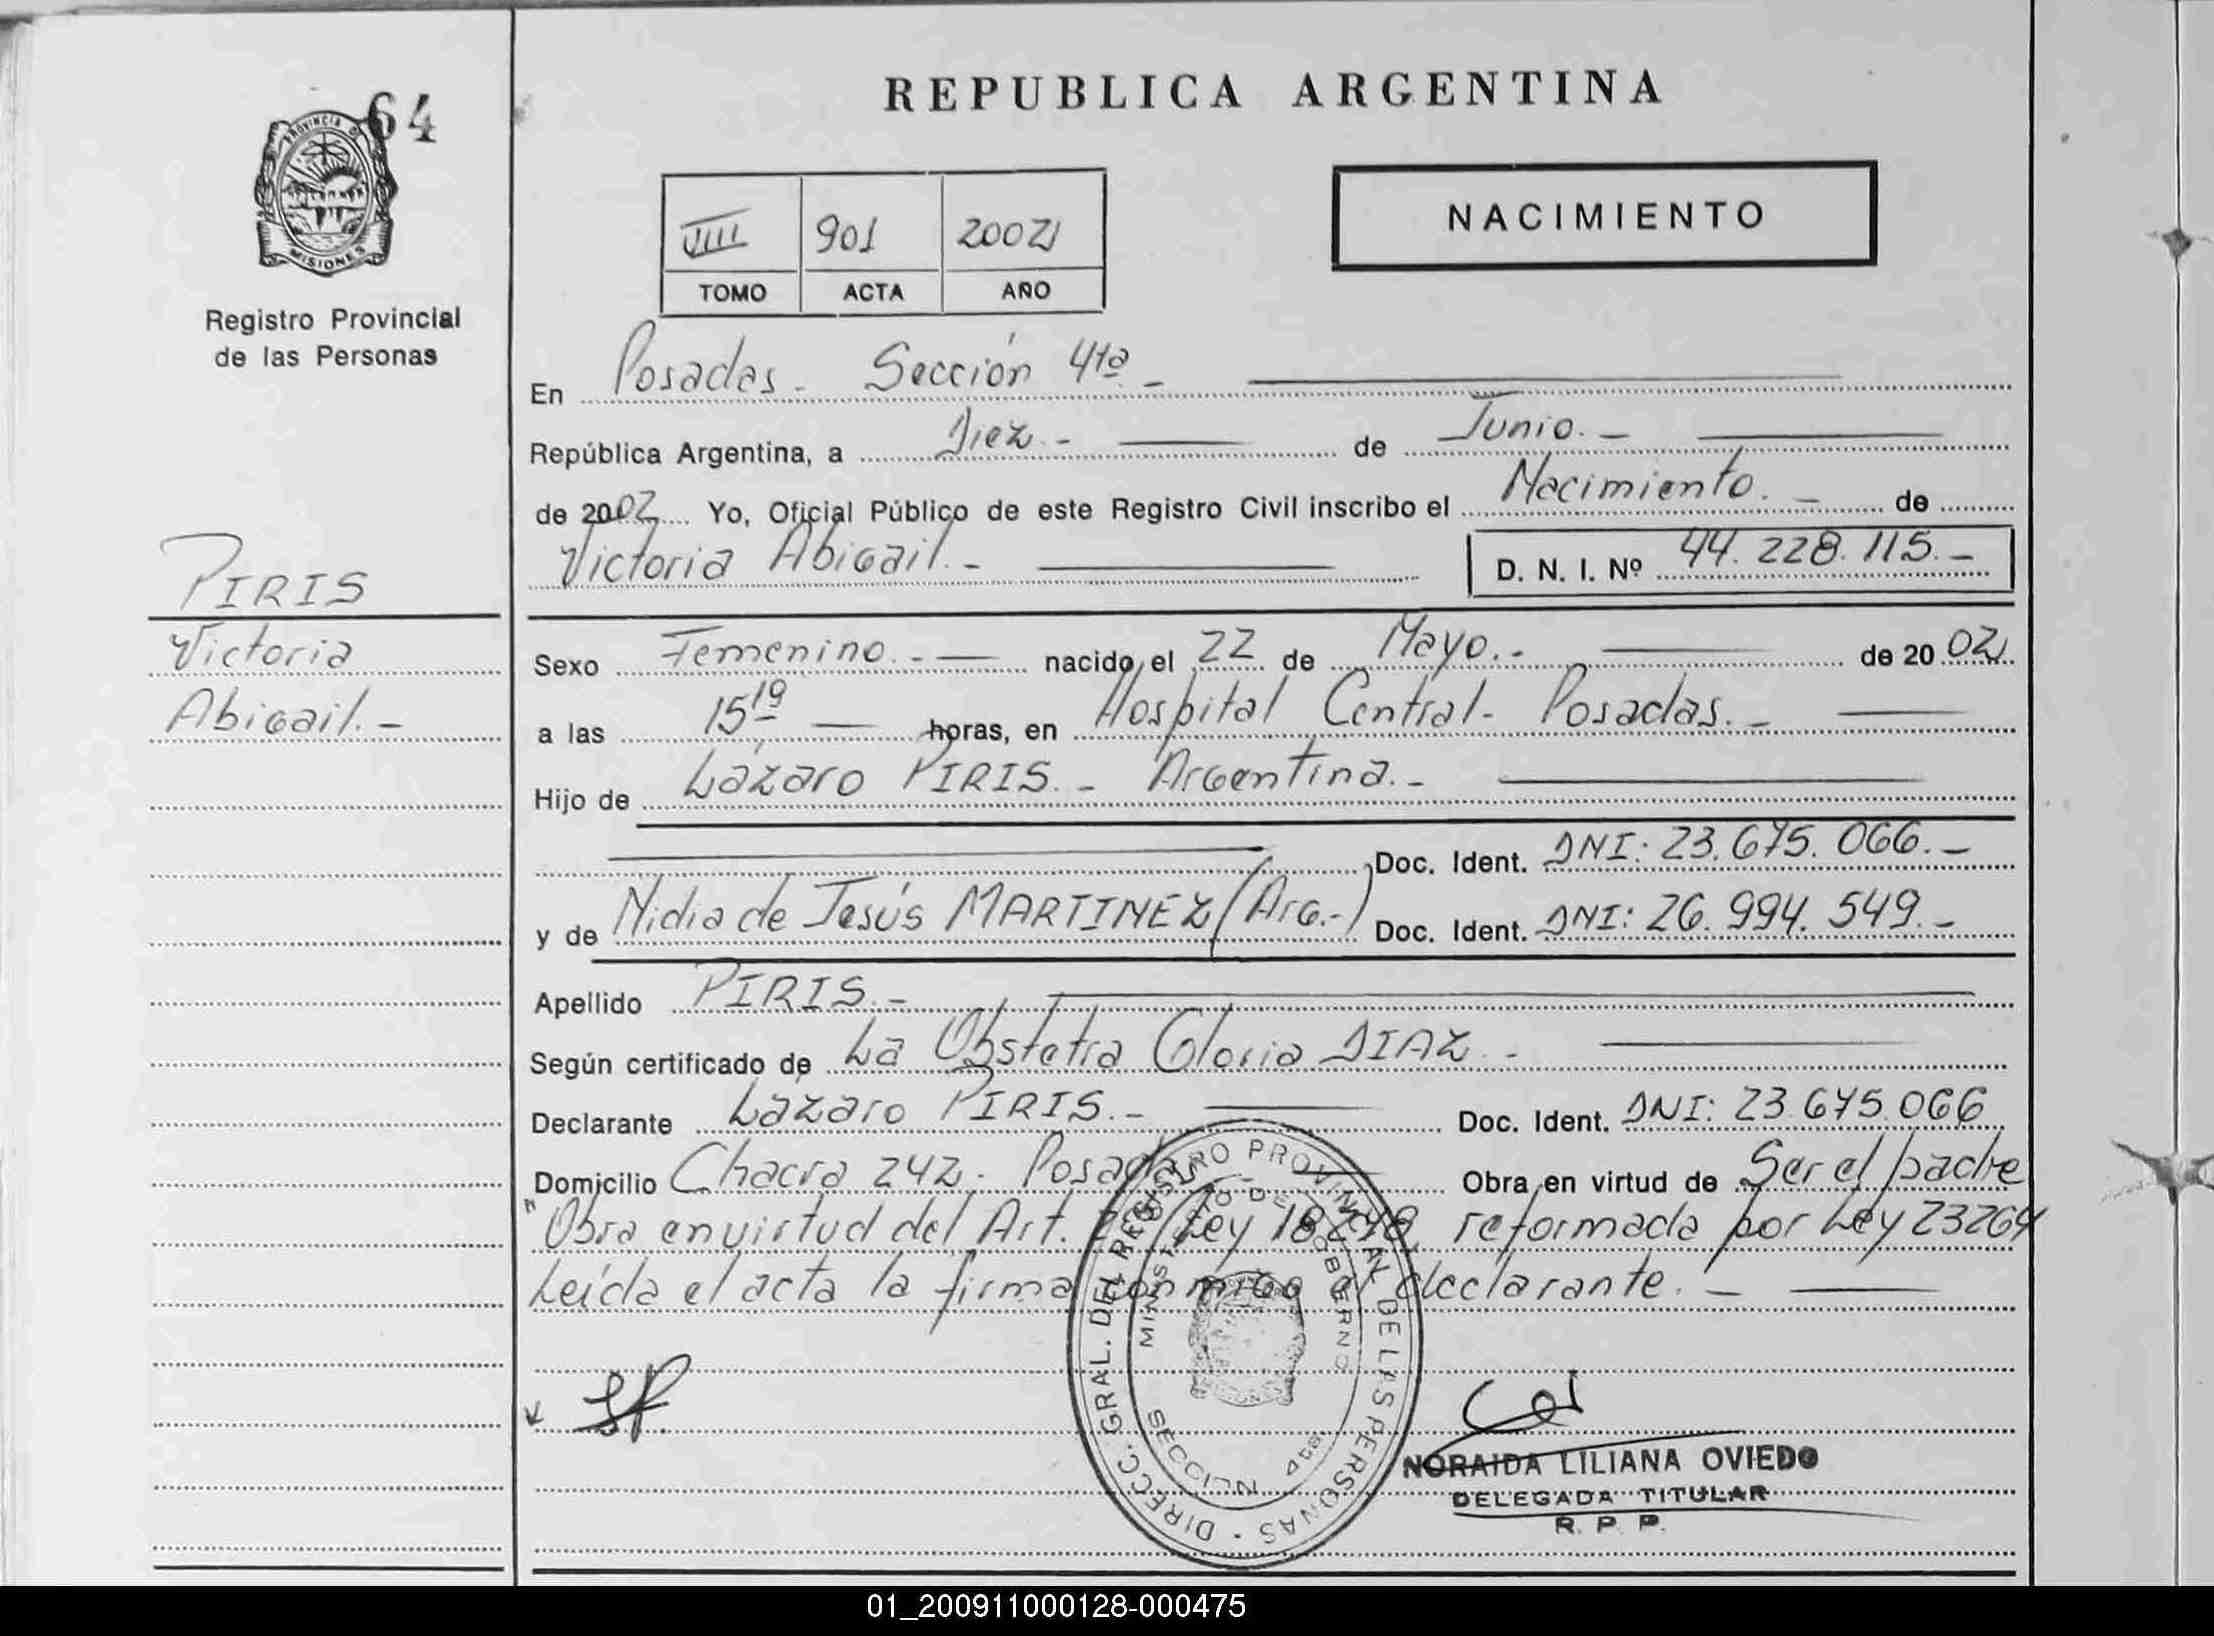 64
PROVINCIA DE
MISIONES
Registro Provincial
de las Personas
REPUBLICA ARGENTINA
NACIMIENTO
901 2002
TOMO ACTA AÑO
En Posadas - Sección 4ta -
República Argentina, a Diez.- de Junio.-
de 2002 Yo, Oficial Público de este Registro Civil inscribo el Nacimiento.- de
Victoria Abigail.-
D. N. I. Nº 44.228.115.-
PIRIS
Victoria
Abigail.-
Sexo Femenino.- nacido el 22 de Mayo.- de 2002
a las 15 19 horas, en Hospital Central - Posadas.-
Hijo de Lázaro PIRIS.- Argentina.-
Doc. Ident. DNI: 23.675.066.-
y de Nidia de Jesús MARTINEZ (Arg.-) Doc. Ident. DNI: 26.994.549.-
Apellido PIRIS.-
Según certificado de La Obstetra Gloria DIAZ.-
Declarante Lázaro PIRIS.- Doc. Ident. DNI: 23.675.066
Domicilio Chacra 242 - Posadas Obra en virtud de Ser el padre
"Obra en virtud del Art. Ley 18248, reformada por Ley 23264
Leída el acta la firma conmigo el declarante.-
DIRECC. GRAL. DEL REGISTRO PROVINCIAL DE LAS PERSONAS
MINISTERIO DE GOBIERNO
SECCION 4ta.
NORAIDA LILIANA OVIEDO
DELEGADA TITULAR
R. P. P.
01_200911000128-000475